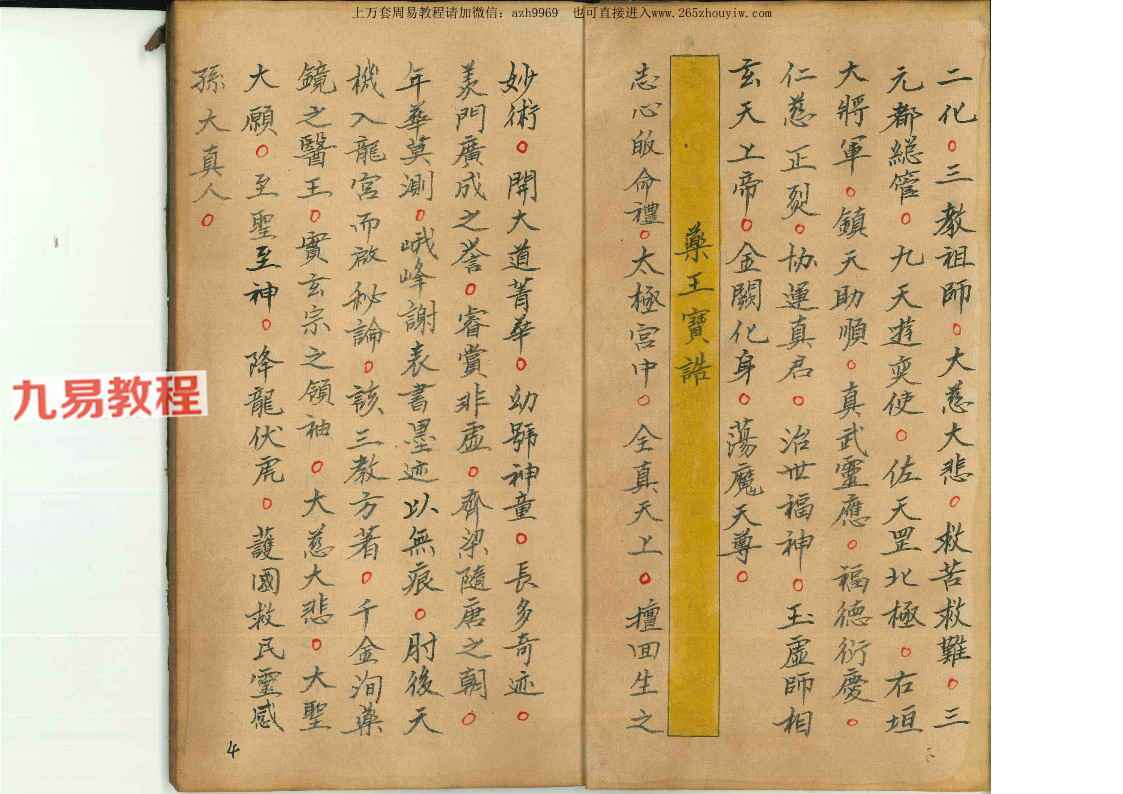 上万套周易教程请加微信：azh9969 也可直接进入www.265zhouyiw.com
二化。三教祖師。大慈大悲。救苦救難。三
元都総管。九天遊奕使。佐天罡北極。右垣
大將軍。鎮天助順。真武靈應。福德衍慶。
仁慈正烈。協運真君。治世福神。玉虛師相
玄天上帝。金闕化身。蕩魔天尊。
藥王寶誥
志心皈命禮。太極宮中。全真天上。擅回生之
妙術。開大道菁華。幼號神童。長多奇迹。
羡門廣成之譽。睿賞非虛。齊梁隨唐之朝。
年華莫測。峨峰謝表書墨迹以無痕。肘後天
機入龍宮而啟秘論。該三教方著。千金洵藥
鏡之醫王。實玄宗之領袖。大慈大悲。大聖
大願。至聖至神。降龍伏虎。護國救民靈感
孫大真人。
4
九易教程